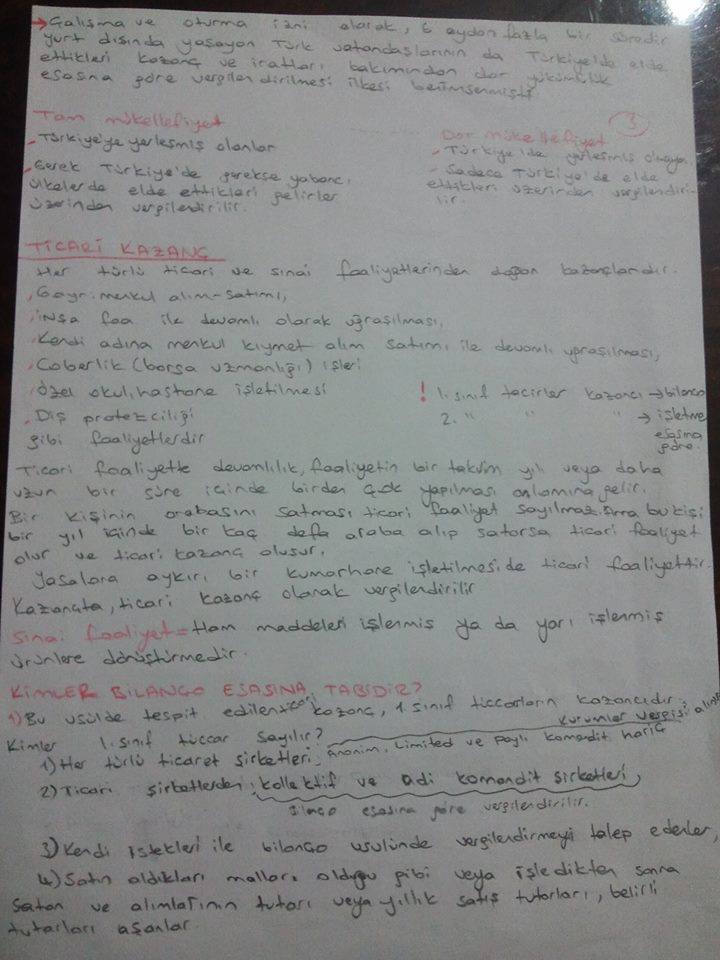 → Çalışma ve oturma izni alarak, 6 aydan fazla bir süredir
yurt dışında yaşayan Türk vatandaşlarının da Türkiye'de elde
ettikleri kazanç ve iratları bakımından dar yükümlülük
esasına göre vergilendirilmesi ilkesi benimsenmişti
3
Tam mükellefiyet
- Türkiye'ye yerleşmiş olanlar
- Gerek Türkiye'de gerekse yabancı
ülkelerde elde ettikleri gelirler
üzerinden vergilendirilir.
Dar mükellefiyet
- Türkiye'de yerleşmiş olmayan
- Sadece Türkiye'de elde
ettikleri üzerinden vergilendiri-
lir.
TİCARİ KAZANÇ
Her türlü ticari ve sınai faaliyetlerinden doğan kazançlardır.
Gayrımenkul alım-satımı,
inşa faa ile devamlı olarak uğraşılması,
Kendi adına menkul kıymet alım satımı ile devamlı uğraşılması,
Coberlik (borsa uzmanlığı) işleri
özel okul, hastane işletilmesi
Diş protezciliği
gibi faaliyetlerdir
! 1. sınıf tacirler kazancı → bilanço
2. " " " → işletme
esasına
göre.
Ticari faaliyette devamlılık, faaliyetin bir takvim yılı veya daha
uzun bir süre içinde birden çok yapılması anlamına gelir.
Bir kişinin arabasını satması ticari faaliyet sayılmaz. Ama bu kişi
bir yıl içinde bir kaç defa araba alıp satarsa ticari faaliyet
olur ve ticari kazanç oluşur.
Yasalara aykırı bir kumarhane işletilmesi de ticari faaliyettir.
Kazançta, ticari kazanç olarak vergilendirilir
Sınai faaliyet = Ham maddeleri işlenmiş ya da yarı işlenmiş
ürünlere dönüştürmedir.
KİMLER BİLANÇO ESASINA TABİDİR?
1) Bu usülde tespit edilen ticari kazanç, 1. sınıf tüccarların kazancıdır.
Kimler 1. sınıf tüccar sayılır?
Kurumlar vergisi
1) Her türlü ticaret şirketleri, anonim, limited ve paylı komandit hariç
2) Ticari şirketlerden; kollektif ve adi komandit şirketleri,
esasına göre vergilendirilir.
3) Kendi istekleri ile bilanço usulünde vergilendirmeyi talep ederler,
4) Satın aldıkları malları olduğu gibi veya işledikten sonra
satan ve alımlarının tutarı veya yıllık satış tutarları, belirli
tutarları aşanlar.